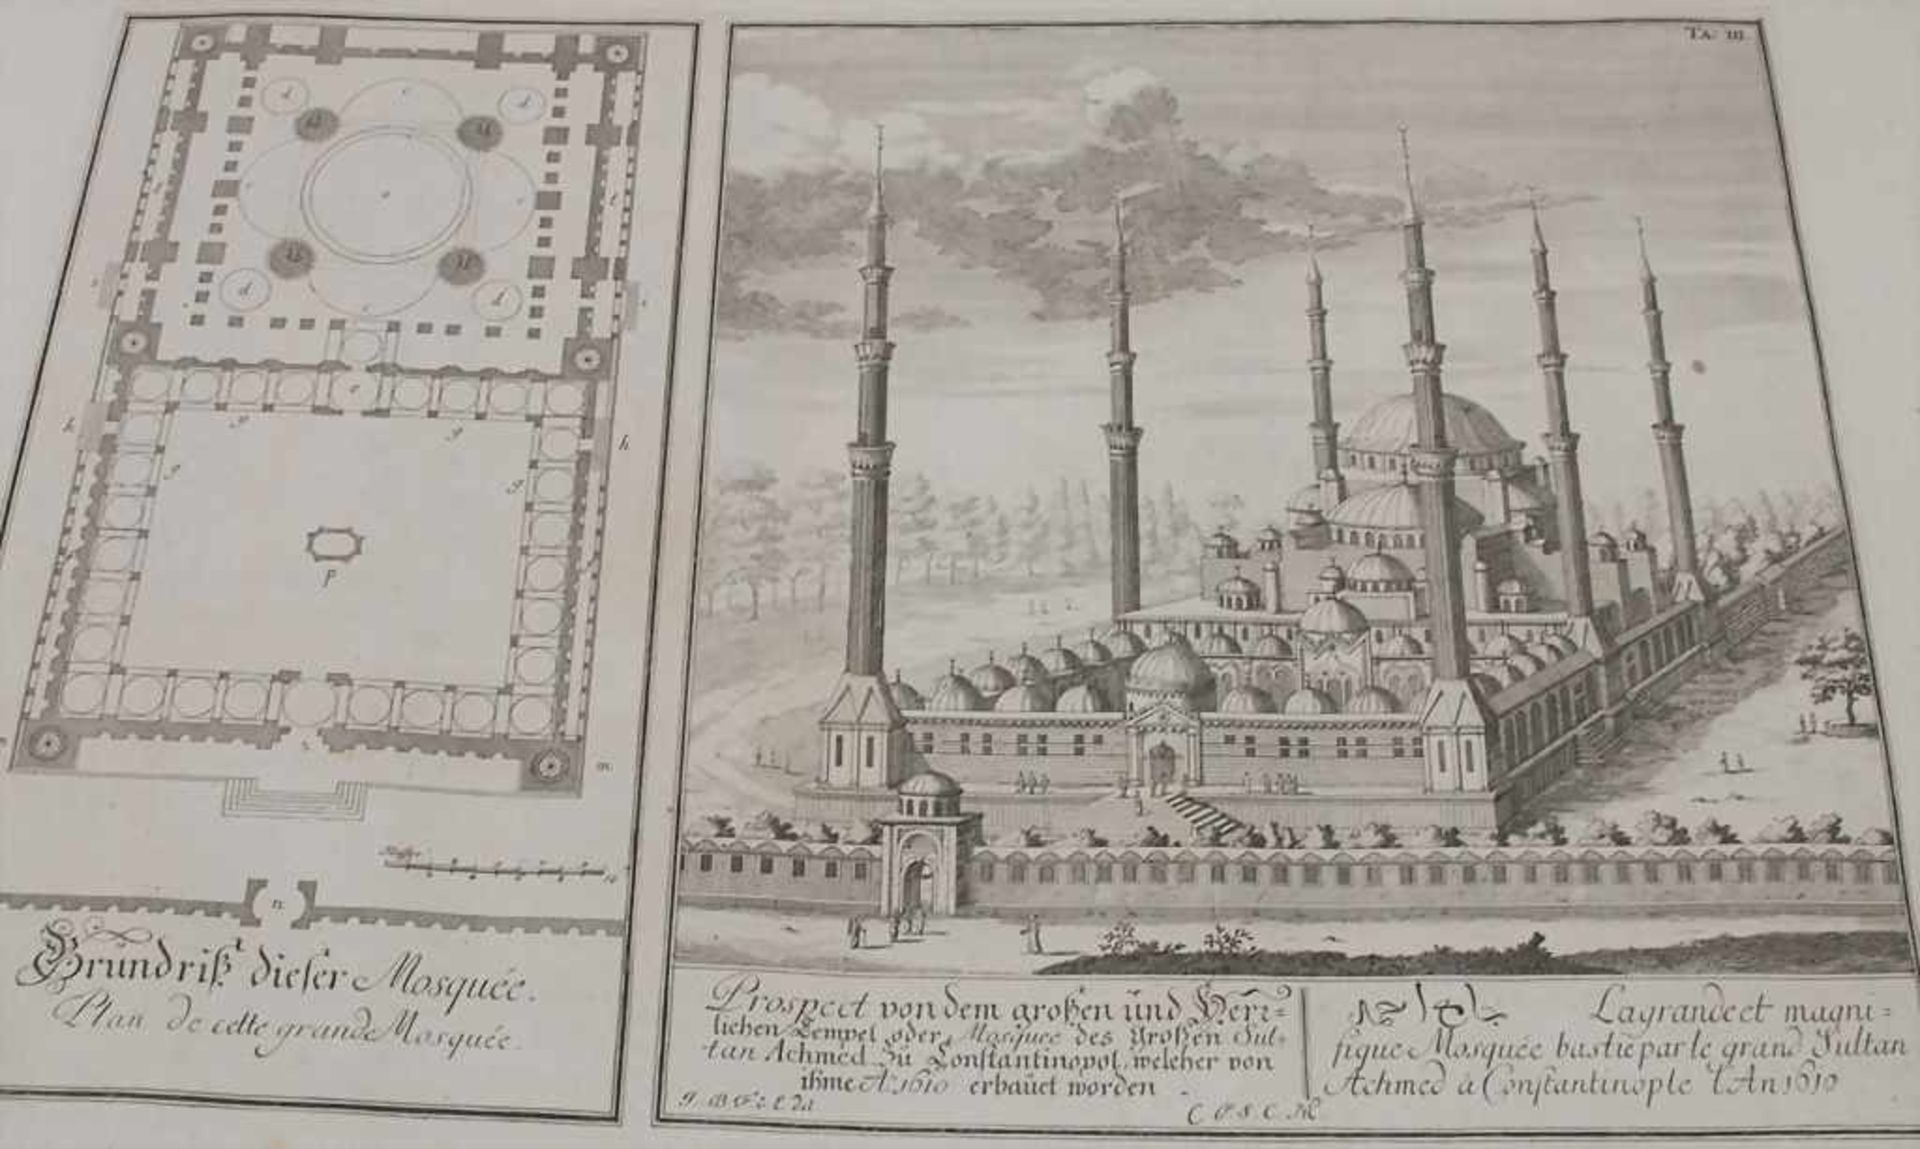 TA: III.
Grundriß dieser Mosquée.
Plan de cette grande Mosquée.
Prospect von dem großen ünd Herr=
lichen Tempel oder Mosquee des Großen Sul-
tan Achmed zü Constantinopol, welcher von
ihme A.º 1610 erbaüet worden
La grande et magni=
fique Mosquée bastie par le grand Sultan
Achmed à Constantinople l'An 1610